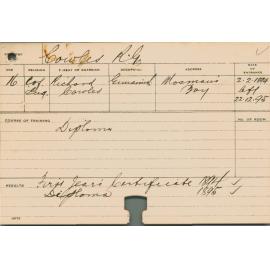 Cowles R.G.
AGE RELIGION PARENT OR GUARDIAN OCCUPATION ADDRESS DATE OF ENTRANCE
16 Cof Richard Mosman's 2-2-1894
Eng Cowles Bay left
22.12.95
COURSE OF TRAINING NO. OF ROOM
Diploma
RESULTS First Year's Certificate 1894
Diploma 1895
NOTE